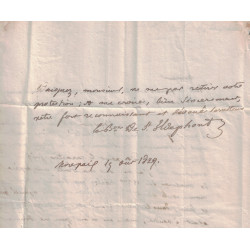 Daignez, monsieur, ne me pas retirer votre
protection; & me croire, bien sincèrement
votre fort reconnaissant et
Le Bon De St
15 août 1829.